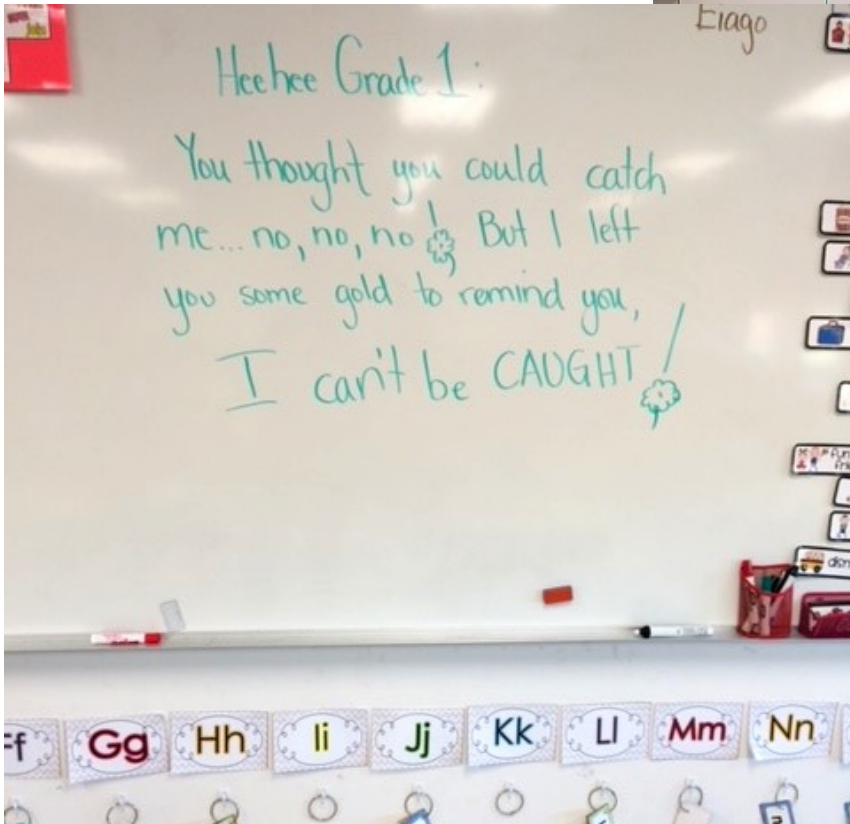 Eiago
Heehee Grade 1:
You thought you could catch
me... no, no, no! But I left
you some gold to remind you,
I can't be CAUGHT!
Gg
Hh
Ii
Jj
Kk
Ll
Mm
Nn